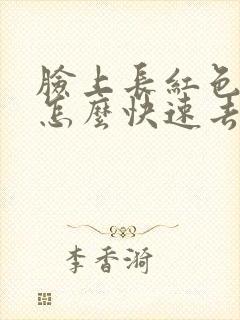 臉上長紅色
怎麼快速去
李香漪